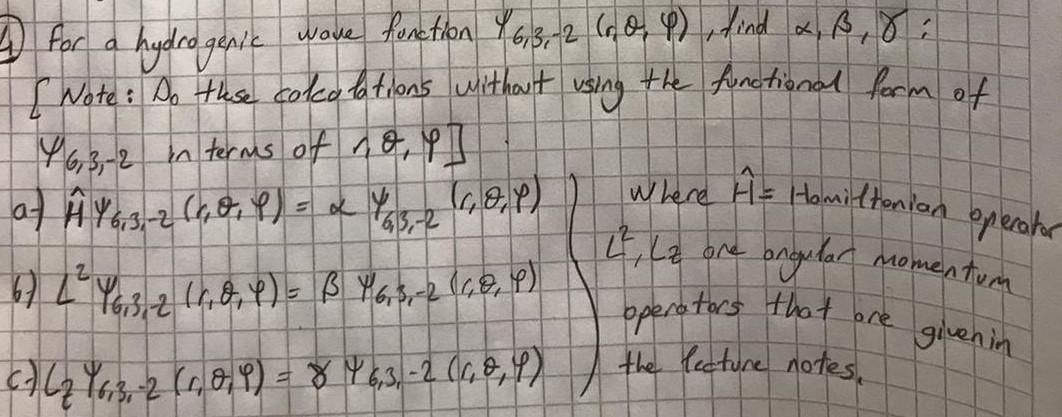 4) For a hydrogenic wave function Ψ6,3,-2 (r, θ, φ), find α, β, γ :
[Note: Do these calculations without using the functional form of
Ψ6,3,-2 in terms of r, θ, φ]
a-) ĤΨ6,3,-2 (r, θ, φ) = α Ψ6,3,-2 (r, θ, φ)
b) L² Ψ6,3,-2 (r, θ, φ) = β Ψ6,3,-2 (r, θ, φ)
c-) Lz Ψ6,3,-2 (r, θ, φ) = γ Ψ6,3,-2 (r, θ, φ)
Where Ĥ = Hamiltonian operator
L², Lz are angular momentum
operators that are given in
the lecture notes.